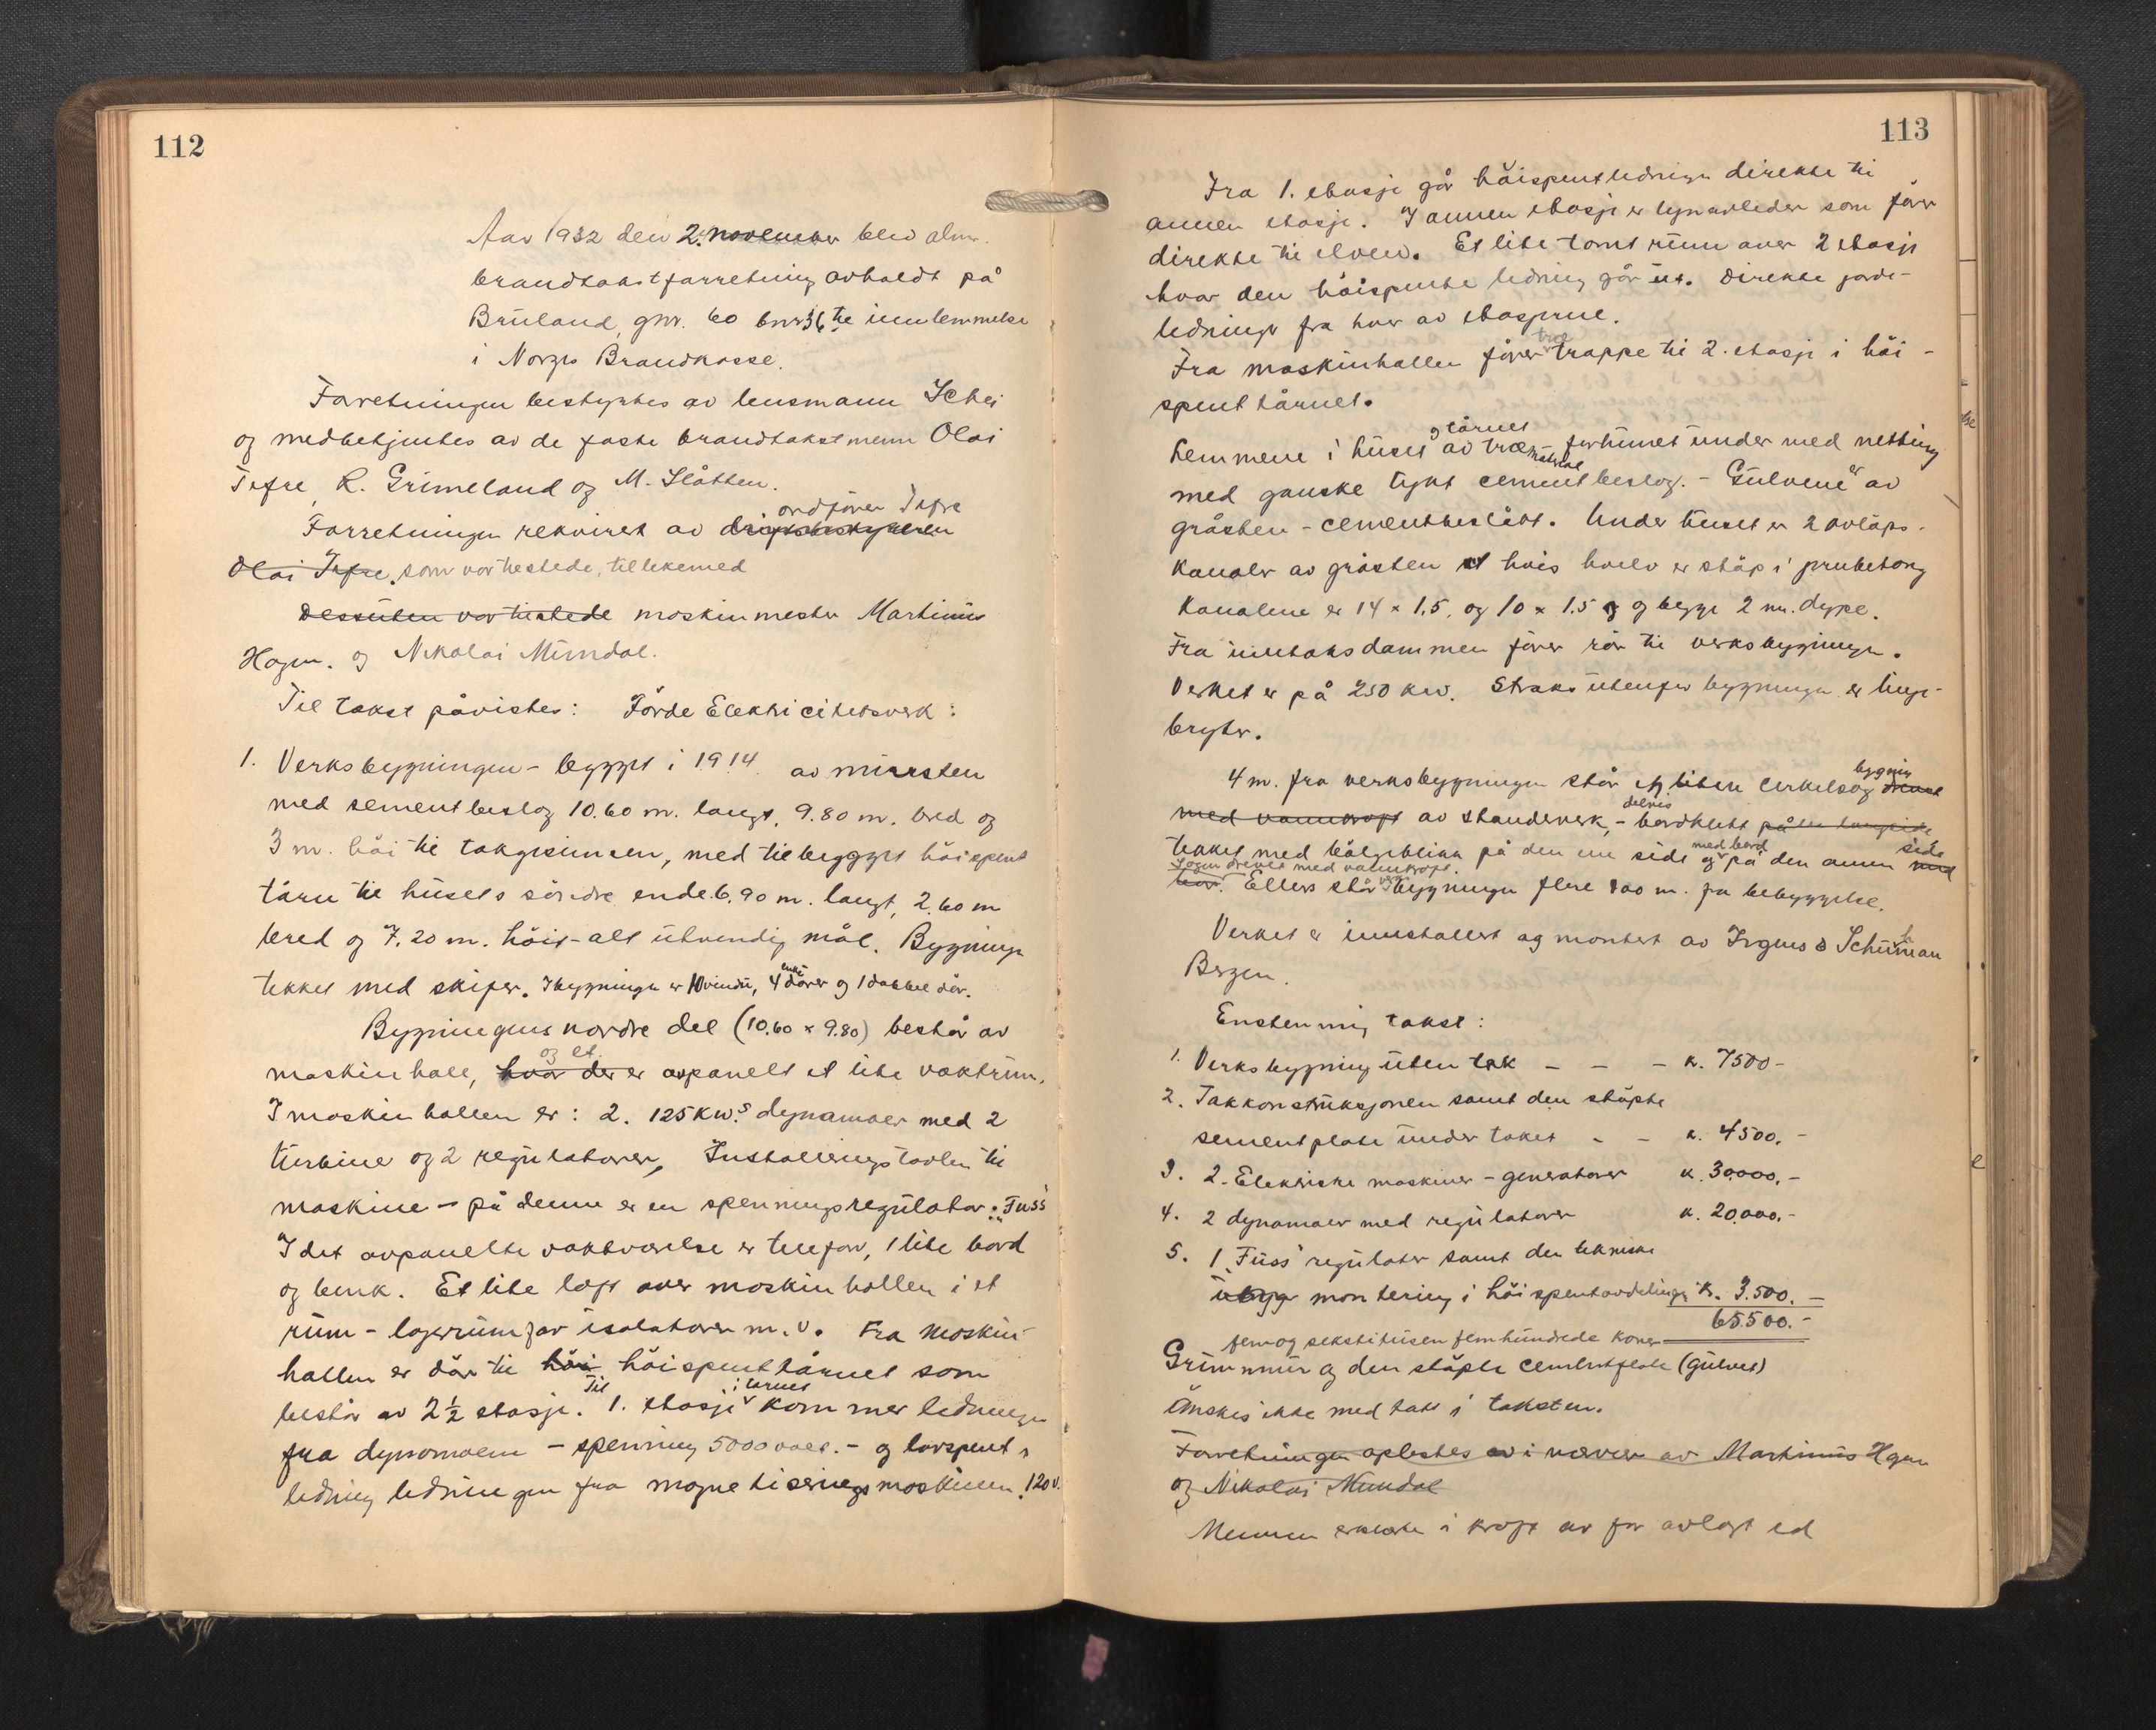 112
Aar 1932 den 2. november blev alm.
brandtakstforretning avholdt på
Bruland, gnr. 60 bnr 36 til innlemmelse
i Norges Brandkasse.
Forretningen bestyrtes av lensmann Schei
og medbetjentes av de faste brandtakstmenn Olai
Tefre, R. Grimeland og M. Slåtten.
ordfører Tefre
Forretningen rekvirert av driftsbestyreren
Olai Tefre, som var tilstede, tillikemed
Dessuten var tilstede maskinmester Martinus
Hagen. og Nikolai Mundal.
Til takst påvistes: Förde Elektricitetsverk:
1. Verksbygningen - bygget i 1914 av mursten
med sementbeslag 10.60 m. langt, 9.80 m. bred og
3 m. höi til takgesimsen, med tilbygget höispent
tårn til husets söndre ende 6.90 m. langt, 2.60 m
bred og 7.20 m. höit - alt utvendig mål. Bygningen
enkle
tekket med skifer. I bygningen er 10 vindu, 4 dörer og 1 dobbel dör.
Bygningens nordre del (10.60 x 9.80) består av
og et
maskinhall, hvor der er avpanelt et lite vaktrum.
I maskinhallen er: 2. 125 KW.s dynamoer med 2
turbine og 2 regulatorer, Installeringstavlen til
maskine - på denne er en spenningsregulator: "Fuss"
I det avpanelte vaktværelse er telefon, 1 lite bord
og benk. Et lite loft over maskinhallen i et
rum - lagerrum for isolatorer m.v. Fra maskin
hallen er dör til höi höispenttårnet som
Til i tårnet
består av 2½ etasje. 1. etasje kommer ledningen
fra dynamoene - spenning 5000 volt. - og lavspent
ledning ledningen fra magnetiseringsmaskinen. 120 V.
113
Fra 1. etasje går höispentledningen direkte til
annen etasje. I annen etasje er lynavleder som förer
direkte til elven. Et lite tomt rum over 2 etasje
hvor den höispente ledning går ut. Direkte jord-
ledninger fra hver av etasjerne.
træ
Fra maskinhallen förer trappe til 2. etasje i höi-
spenttårnet.
og tårnet
Lemmene i huset av træmaterial - forhunet under med netting
er
med ganske tynt cementbeslag. - Gulvene av
gråsten - cementbeslått. Under huset er 2 avlöps.
Kanaler av gråsten hvis hvelv er stöpt i betong
Kanalene er 14 x 1.5, og 10 x 1.5 og begge 2 m. dype.
Fra inntaksdammen förer rör til verksbygningen.
Verket er på 250 kw. Straks utenfor bygningen er linje-
bryter.
bygning
4 m. fra verksbygningen står en liten cirkelsag drevet
delvis
med vannkraft av standerverk, - bordkledt på tre langside
med bord side
tekket med bölgeblikk på den ene side og på den annen med
Sagen drives med vannkraft.
bord. Ellers står bygningen flere 100 m. fra bebyggelse.
Verket er innstallert og montert av Irgens & Schuman
Bergen.
Enstemmig takst:
1. Verksbygning uten tak - - - k. 7500-
2. Takkonstruksjonen samt den stöpte
sementplate under taket - - k. 4500.-
3. 2. Elektriske maskiner - generatorer k. 30.000.-
4. 2 dynamoer med regulatorer k. 20.000.-
5. 1 "Fuss" regulator samt den tekniske
utbygg montering i höispentavdelingen k. 3.500.-
65.500.-
femogsekstitusen femhundrede kroner
Grunnmur og den stöpte cementplate (gulvet)
Önskes ikke med tatt i taksten.
Forretningen oplestes i nærvær av Martinus Hagen
og Nikolai Mundal
Mennene erklærte i kraft av för avlagt ed